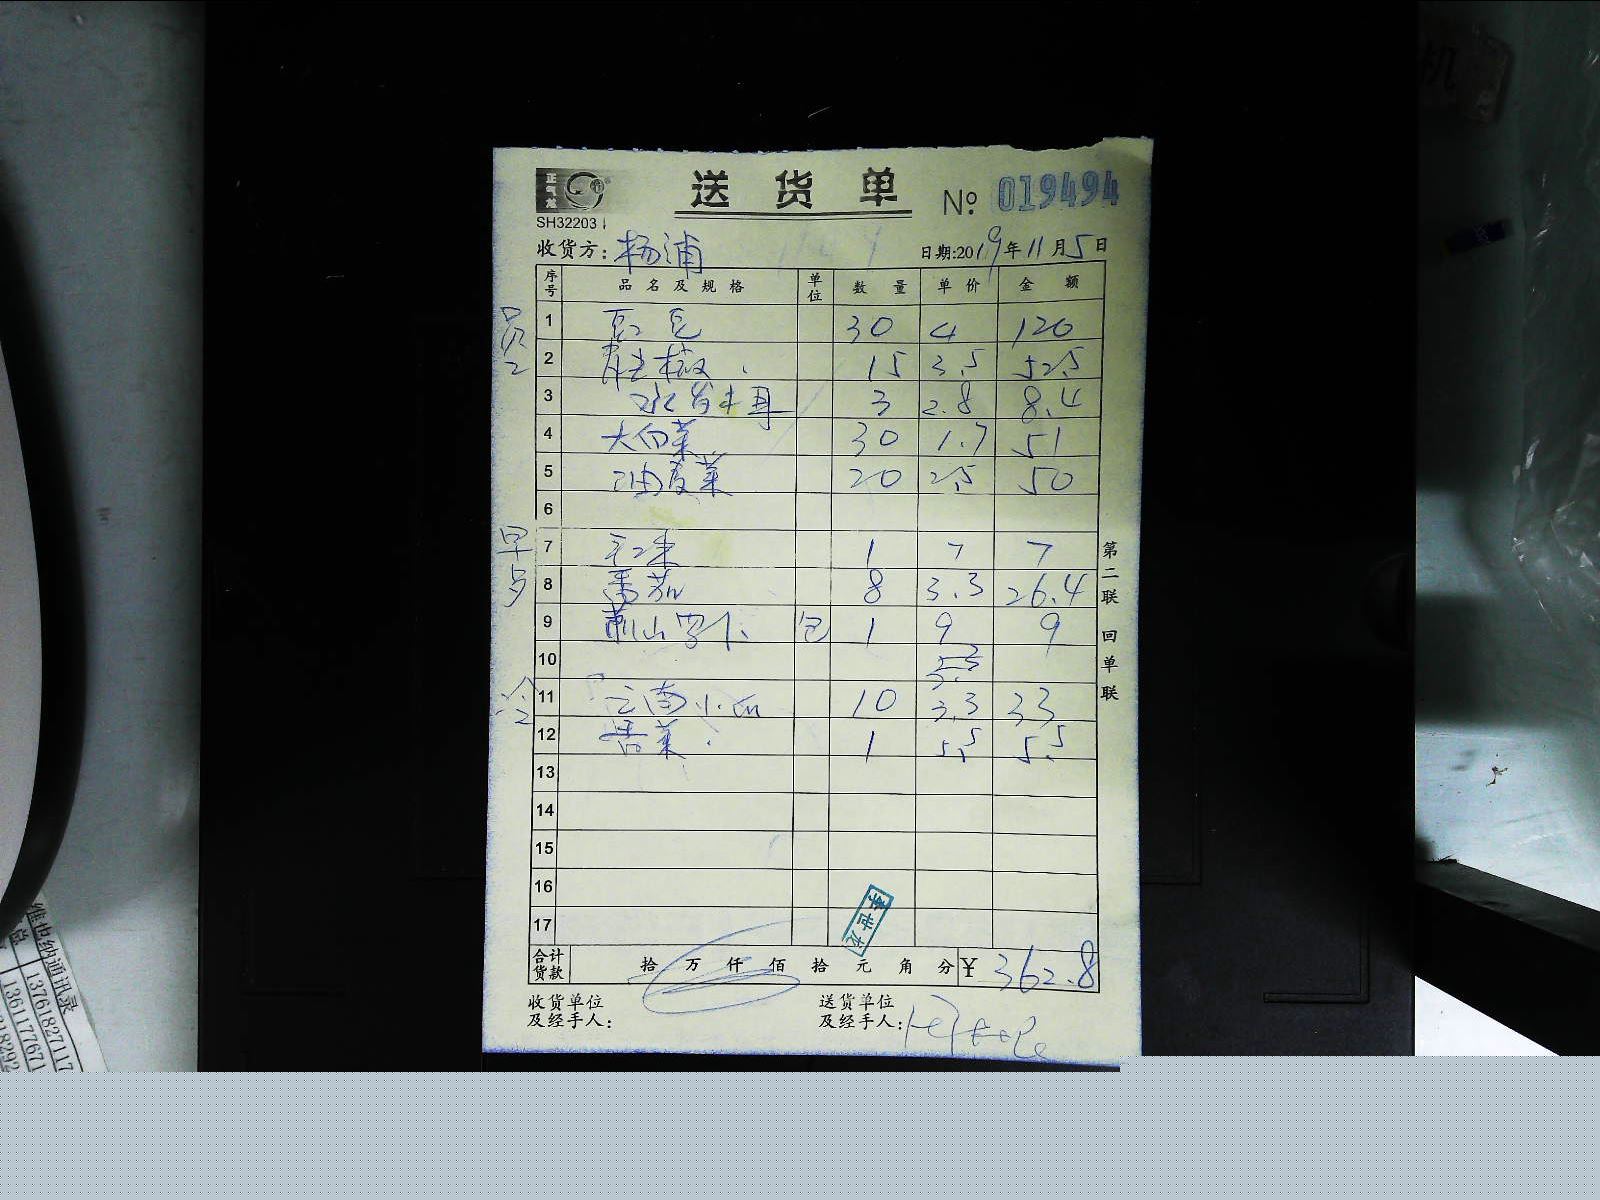 正气龙
SH32203
送 货 单
№ 019494
收货方: 杨浦
日期:2019年11月5日
序号 品名及规格 单位 数量 单价 金额
员工
1 30 4 120
2 15 3.5 52.5
3 水发木耳 3 2.8 8.4
4 大白菜 30 1.7 51
5 油麦菜 20 2.5 50
6
早点
7 玉米 1 7 7
8 番茄 8 3.3 26.4
9 萧山萝卜 包 1 9 9
10
冷
11 云南小瓜 10 3.3 33
12 香菜 1 5.5 5.5
13
14
15
16
17
李世龙
合计货款 拾 万 仟 佰 拾 元 角 分 ¥ 362.8
收货单位及经手人:
送货单位及经手人:
第二联 回单联
维也纳通讯录
总
1376182711
1361177671
18292
机